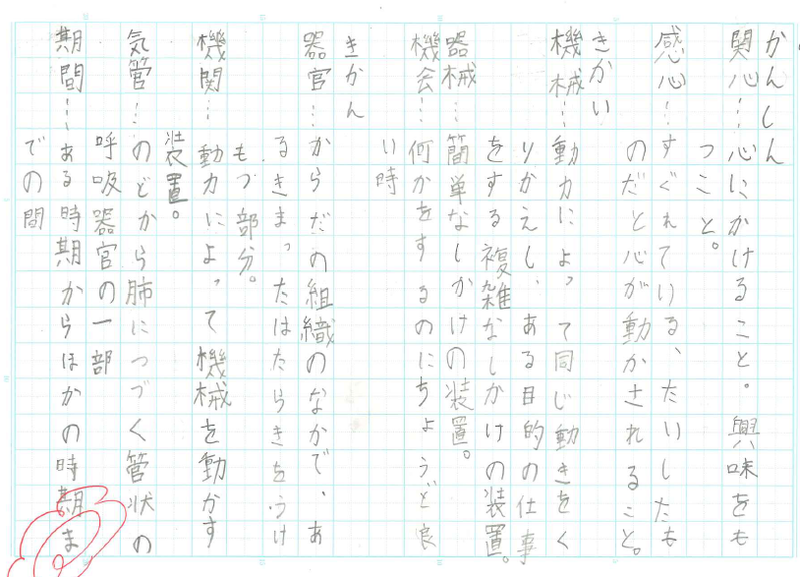 かんしん
関心…心にかけること。興味をも
つこと。
感心…すぐれている、たいしたも
のだと心が動かされること。
きかい
機械…動力によって同じ動きをく
りかえし、ある目的の仕事
をする複雑なしかけの装置。
器械…簡単なしかけの装置。
機会…何かをするのにちょうど良
い時
きかん
器官…からだの組織のなかで、あ
るきまったはたらきをうけ
もつ部分。
機関…動力によって機械を動かす
装置。
気管…のどから肺につづく管状の
呼吸器官の一部
期間…ある時期からほかの時期ま
での間